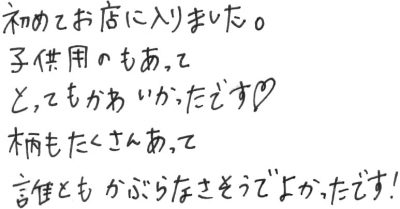 初めてお店に入りました。
子供用のもあって
とってもかわいかったです♡
柄もたくさんあって
誰ともかぶらなさそうでよかったです!